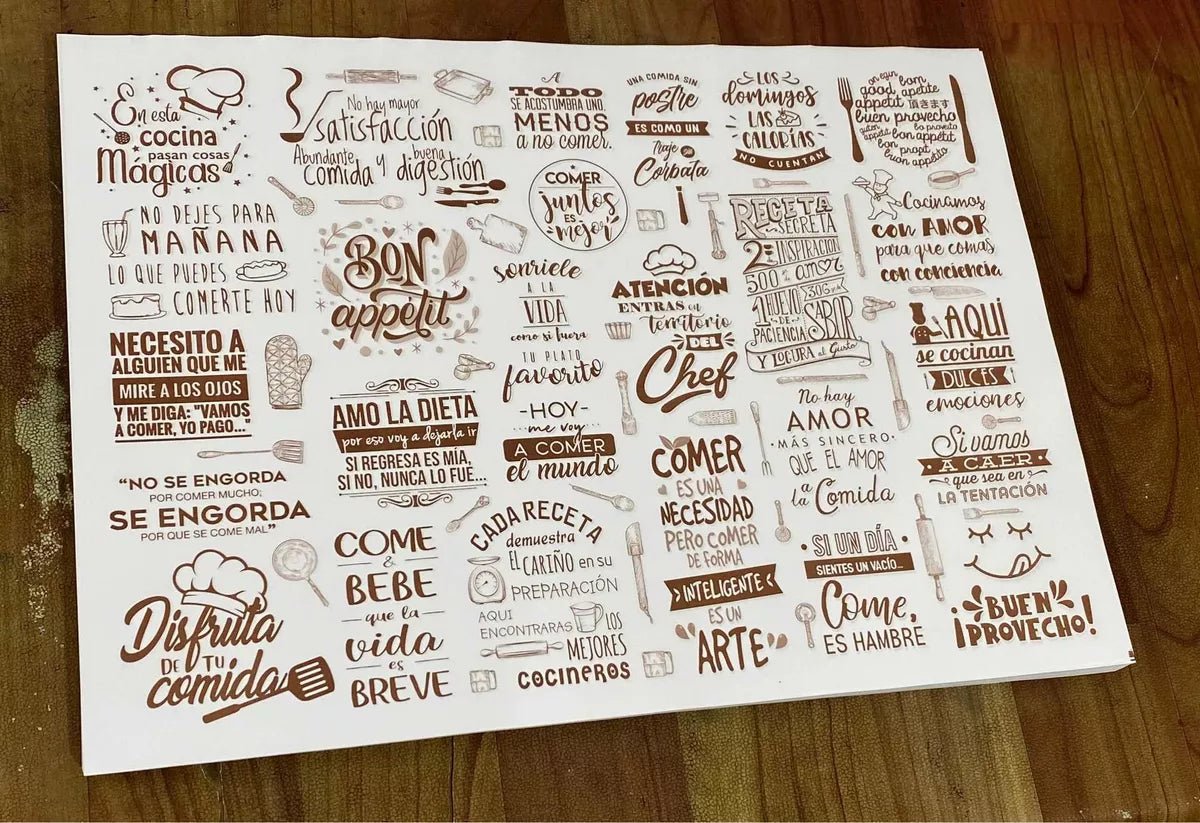 En esta
cocina
pasan cosas
Mágicas
No hay mayor
satisfacción
Abundante
comida y buena
digestión
A
TODO
SE ACOSTUMBRA UNO,
MENOS
a no comer.
UNA COMIDA SIN
postre
ES COMO UN
Traje sin
Corbata
LOS
domingos
LAS
CALORÍAS
NO CUENTAN
on egin bom
good apetite
appetit 頂きます
buen provecho
guten appetit bo proveito
bon appetit
bon profit
buon appetito
NO DEJES PARA
MAÑANA
LO QUE PUEDES
COMERTE HOY
BON
appétit
COMER
juntos
ES
mejor
sonriele
A LA
VIDA
como si fuera
TU PLATO
favorito
ATENCIÓN
ENTRAS en
territorio
DEL
Chef
RECETA
SECRETA
2 DE INSPIRACIÓN
500 de amor
1 HUEVO
DE
PACIENCIA
30G DE
SABOR
Y LOGURA al Gusto
Cocinamos
con AMOR
para que comas
con conciencia
NECESITO A
ALGUIEN QUE ME
MIRE A LOS OJOS
Y ME DIGA: "VAMOS
A COMER, YO PAGO..."
AMO LA DIETA
por eso voy a dejarla ir
SI REGRESA ES MÍA,
SI NO, NUNCA LO FUE...
-HOY-
me voy
A COMER
el mundo
No hay
AMOR
·MÁS SINCERO·
QUE EL AMOR
a la Comida
AQUÍ
se cocinan
DULCES
emociones
"NO SE ENGORDA
POR COMER MUCHO;
SE ENGORDA
POR QUE SE COME MAL"
COMER
ES UNA
NECESIDAD
PERO COMER
DE FORMA
INTELIGENTE
ES UN
ARTE
Si vamos
A CAER
que sea en
LA TENTACIÓN
Disfruta
DE TU
comida
COME
&
BEBE
que la
vida
es
BREVE
CADA RECETA
demuestra
EL CARIÑO en su
PREPARACIÓN
AQUI
ENCONTRARAS LOS
MEJORES
COCINEROS
SI UN DÍA
SIENTES UN VACÍO...
Come,
ES HAMBRE
¡BUEN
PROVECHO!